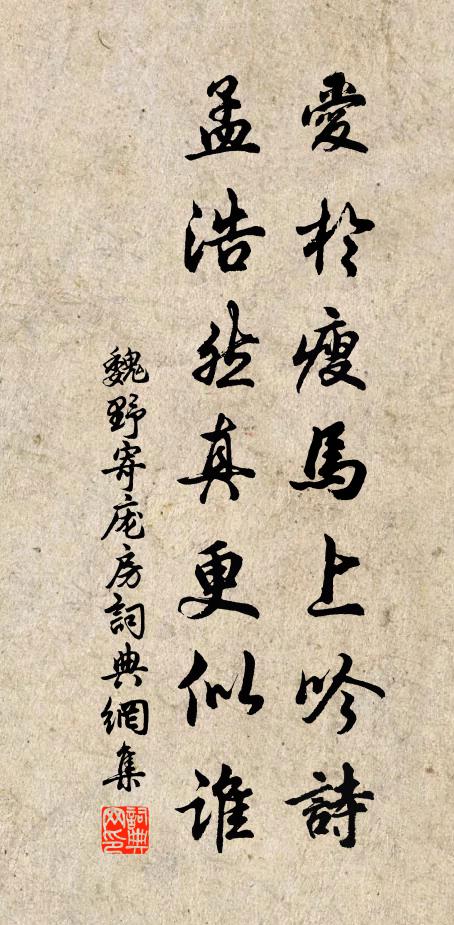 愛於瘦馬上吟詩
孟浩然真更似誰
魏野寄庞房詞典網集
詞典網印